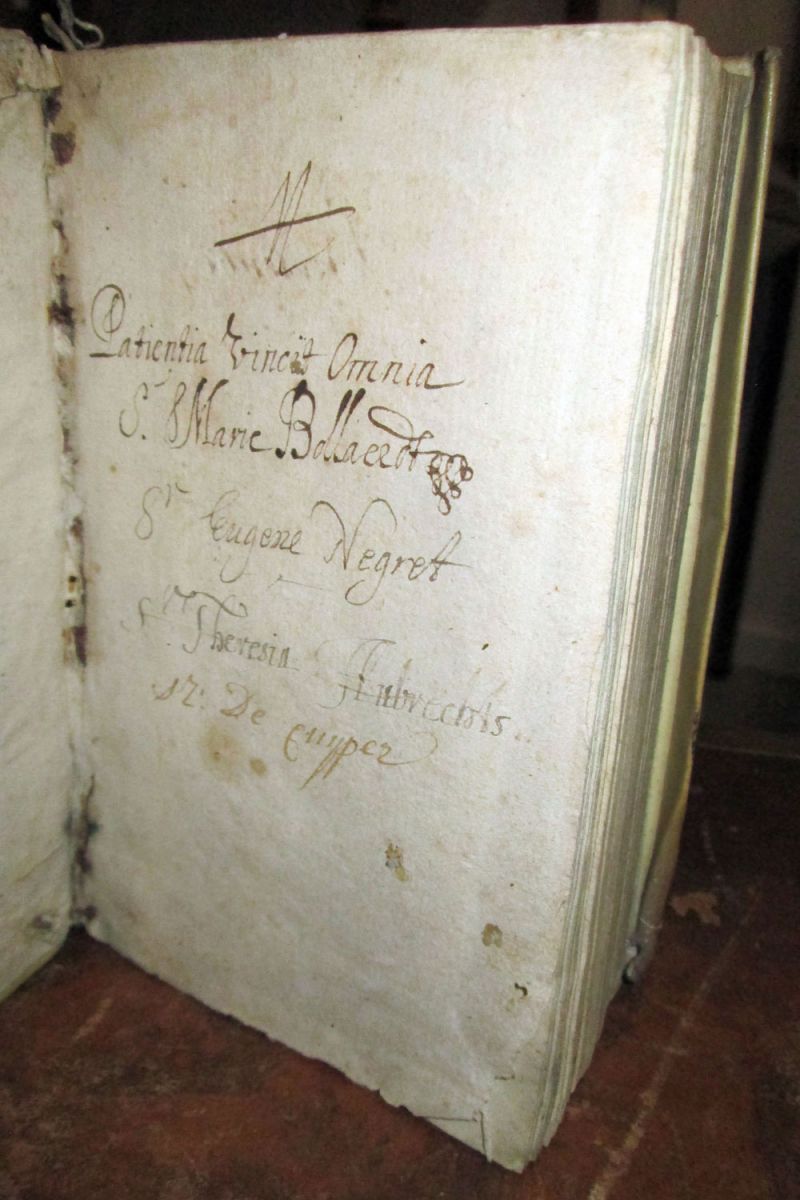 Patientia Vincit Omnia
Sr. Marie Bollaerdt
Sr Eugene Negret
Sr Theresia Aubrechts
Sr. De Cuyper